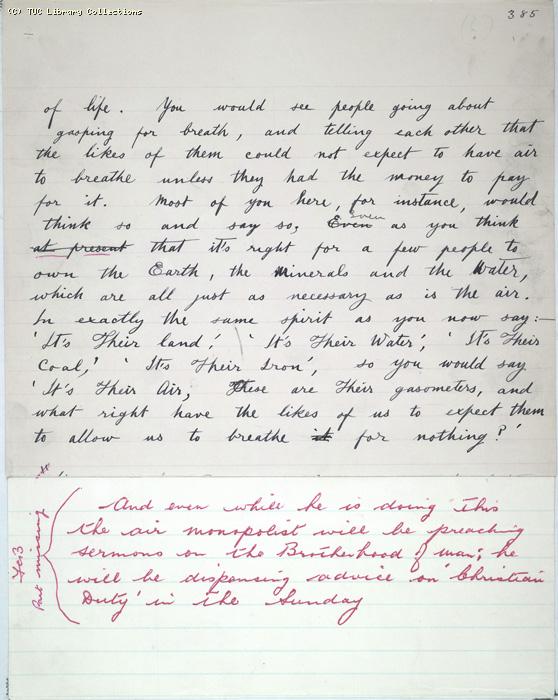 (C) TUC Library Collections
385
of life. You would see people going about
gasping for breath, and telling each other that
the likes of them could not expect to have air
to breathe unless they had the money to pay
for it. Most of you here, for instance, would
think so and say so. Even even as you think
at present that it's right for a few people to
own the Earth, the Minerals and the Water,
which are all just as necessary as is the air.
In exactly the same spirit as you now say:—
'It's Their land,' 'It's Their Water,' 'It's Their
Coal,' 'It's Their Iron', so you would say
'It's Their Air, These are Their gasometers, and
what right have the likes of us to expect them
to allow us to breathe it for nothing?'
And even while he is doing this
the air monopolist will be preaching
sermons on the Brotherhood of man; he
will be dispensing advice on 'Christian
Duty' in the Sunday
Part missing